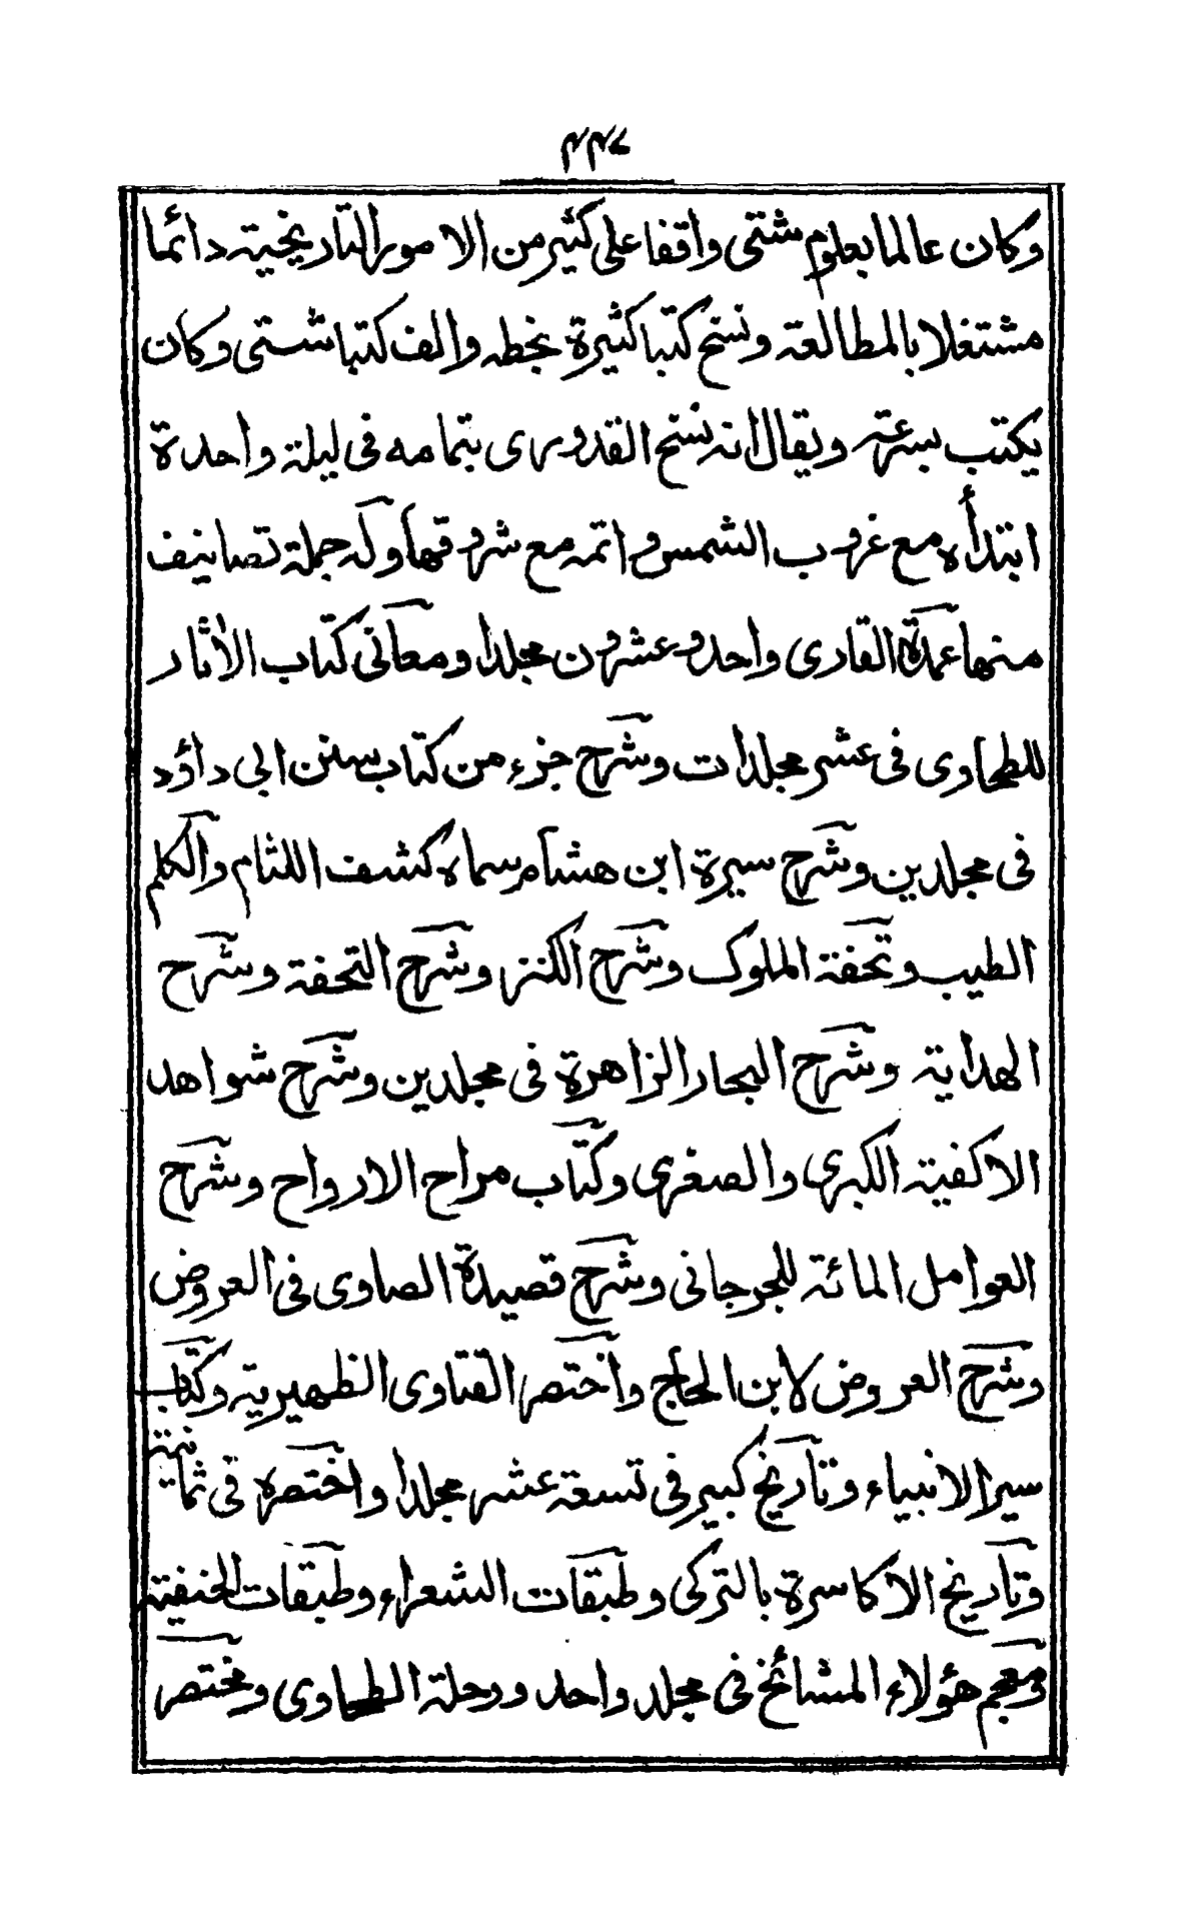 ۴۴۷
وكان عالما بعلوم شتى واقفا على كثير من الامور التاريخية دائما
مشتغلا بالمطالعة ونسخ كتبا كثيرة بخطه والف كتبا شتى وكان
يكتب بسرعة ويقال انه نسخ القدورى بتمامه فى ليلة واحدة
ابتدأه مع غروب الشمس واتمه مع شروقها وله جملة تصانيف
منها عمدة القارى واحد وعشرون مجلدا ومعانى كتاب الاثار
للطحاوى فى عشر مجلدات وشرح جزء من كتاب سنن ابى داؤد
فى مجلدين وشرح سيرة ابن هشام سماه كشف اللثام والكلم
الطيب وتحفة الملوك وشرح الكنز وشرح التحفة وشرح
الهداية وشرح البحار الزاهرة فى مجلدين وشرح شواهد
الاكفية الكبرى والصغرى وكتاب مراح الارواح وشرح
العوامل المائة للجرجانى وشرح قصيدة الصاوى فى العروض
وشرح العروض لابن الحاجج واختصر الفتاوى الظهيرية وكتاب
سير الانبياء وتاريخ كبير فى تسعة عشر مجلدا واختصره فى ثمانية
وتاريخ الاكاسرة بالتركى وطبقات الشعراء وطبقات الحنفية
ومعجم هؤلاء المشائخ فى مجلد واحد ورحلة الطحاوى ومختصر